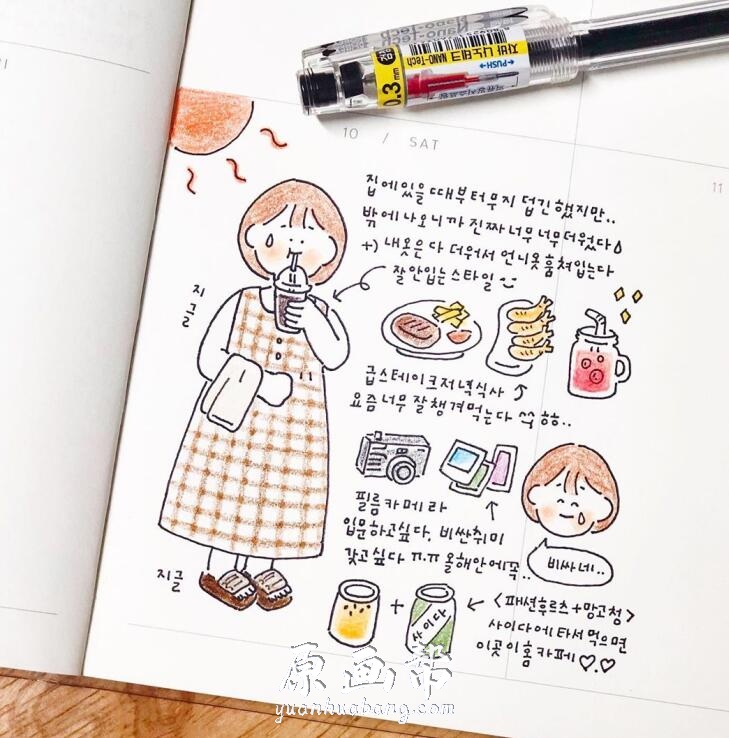 자바 나노테크 NANO-Tech
←PUSH→
0.3mm
10 / SAT
11
집에있을 때부터무지 덥긴했지만..
밖에나오니까 진짜너무너무더웠다
+) 내옷은다 더워서 언니옷훔쳐입는다
잘안입는스타일
지글
급스테이크저녁식사
요즘너무잘챙겨먹는다 ㅎㅎ..
필름카메라
입문하고싶다, 비싼취미
갖고싶다 ㅠ.ㅠ 올해안에꼭..
비싸네..
지글
+
사이다
<패션후르츠+망고청>
사이다에타서먹으면
이곳이홈카페♡.♡
原画帮
yuanhuabang.com